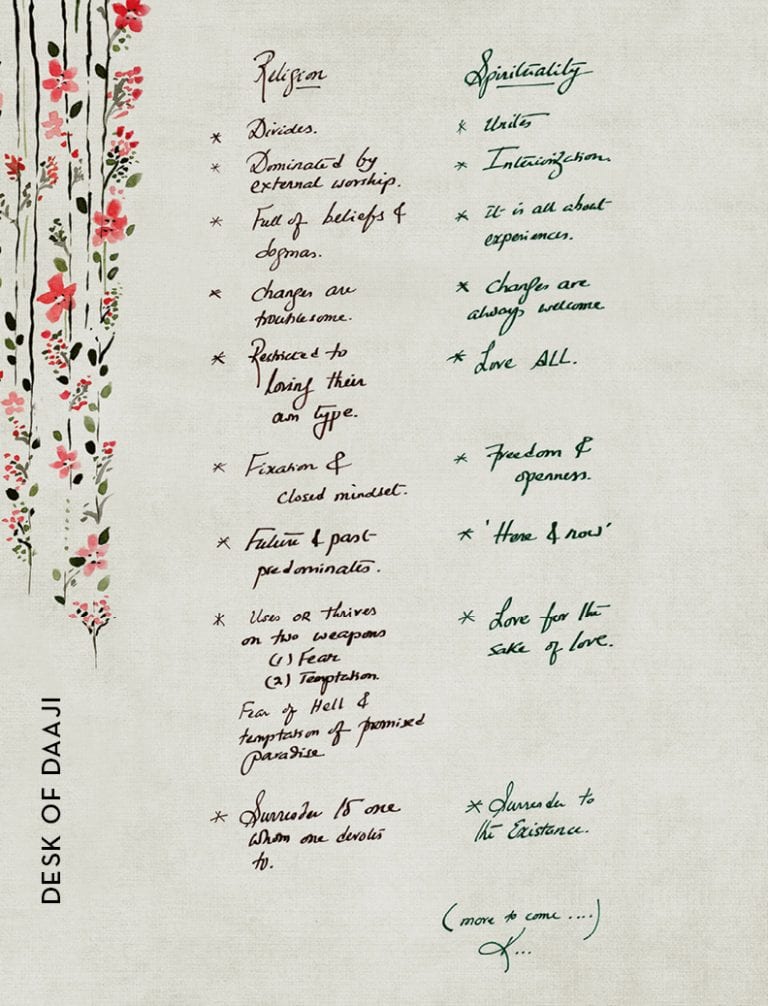 Religion
* Divides.
* Dominated by
external worship.
* Full of beliefs &
dogmas.
* Changes are
troublesome.
* Restricted to
loving their
own type.
* Fixation &
closed mindset.
* Future & past
predominates.
* Uses OR thrives
on two weapons
(1) Fear
(2) Temptation.
Fear of Hell &
temptation of promised
paradise
* Surrender to one
whom one devotes
to.
Spirituality
* Unites
* Interiorization.
* It is all about
experiences.
* Changes are
always welcome
* Love ALL.
* Freedom &
openness.
* 'Here & now'
* Love for the
sake of love.
* Surrender to
the Existance.
(more to come ....)
DESK OF DAAJI